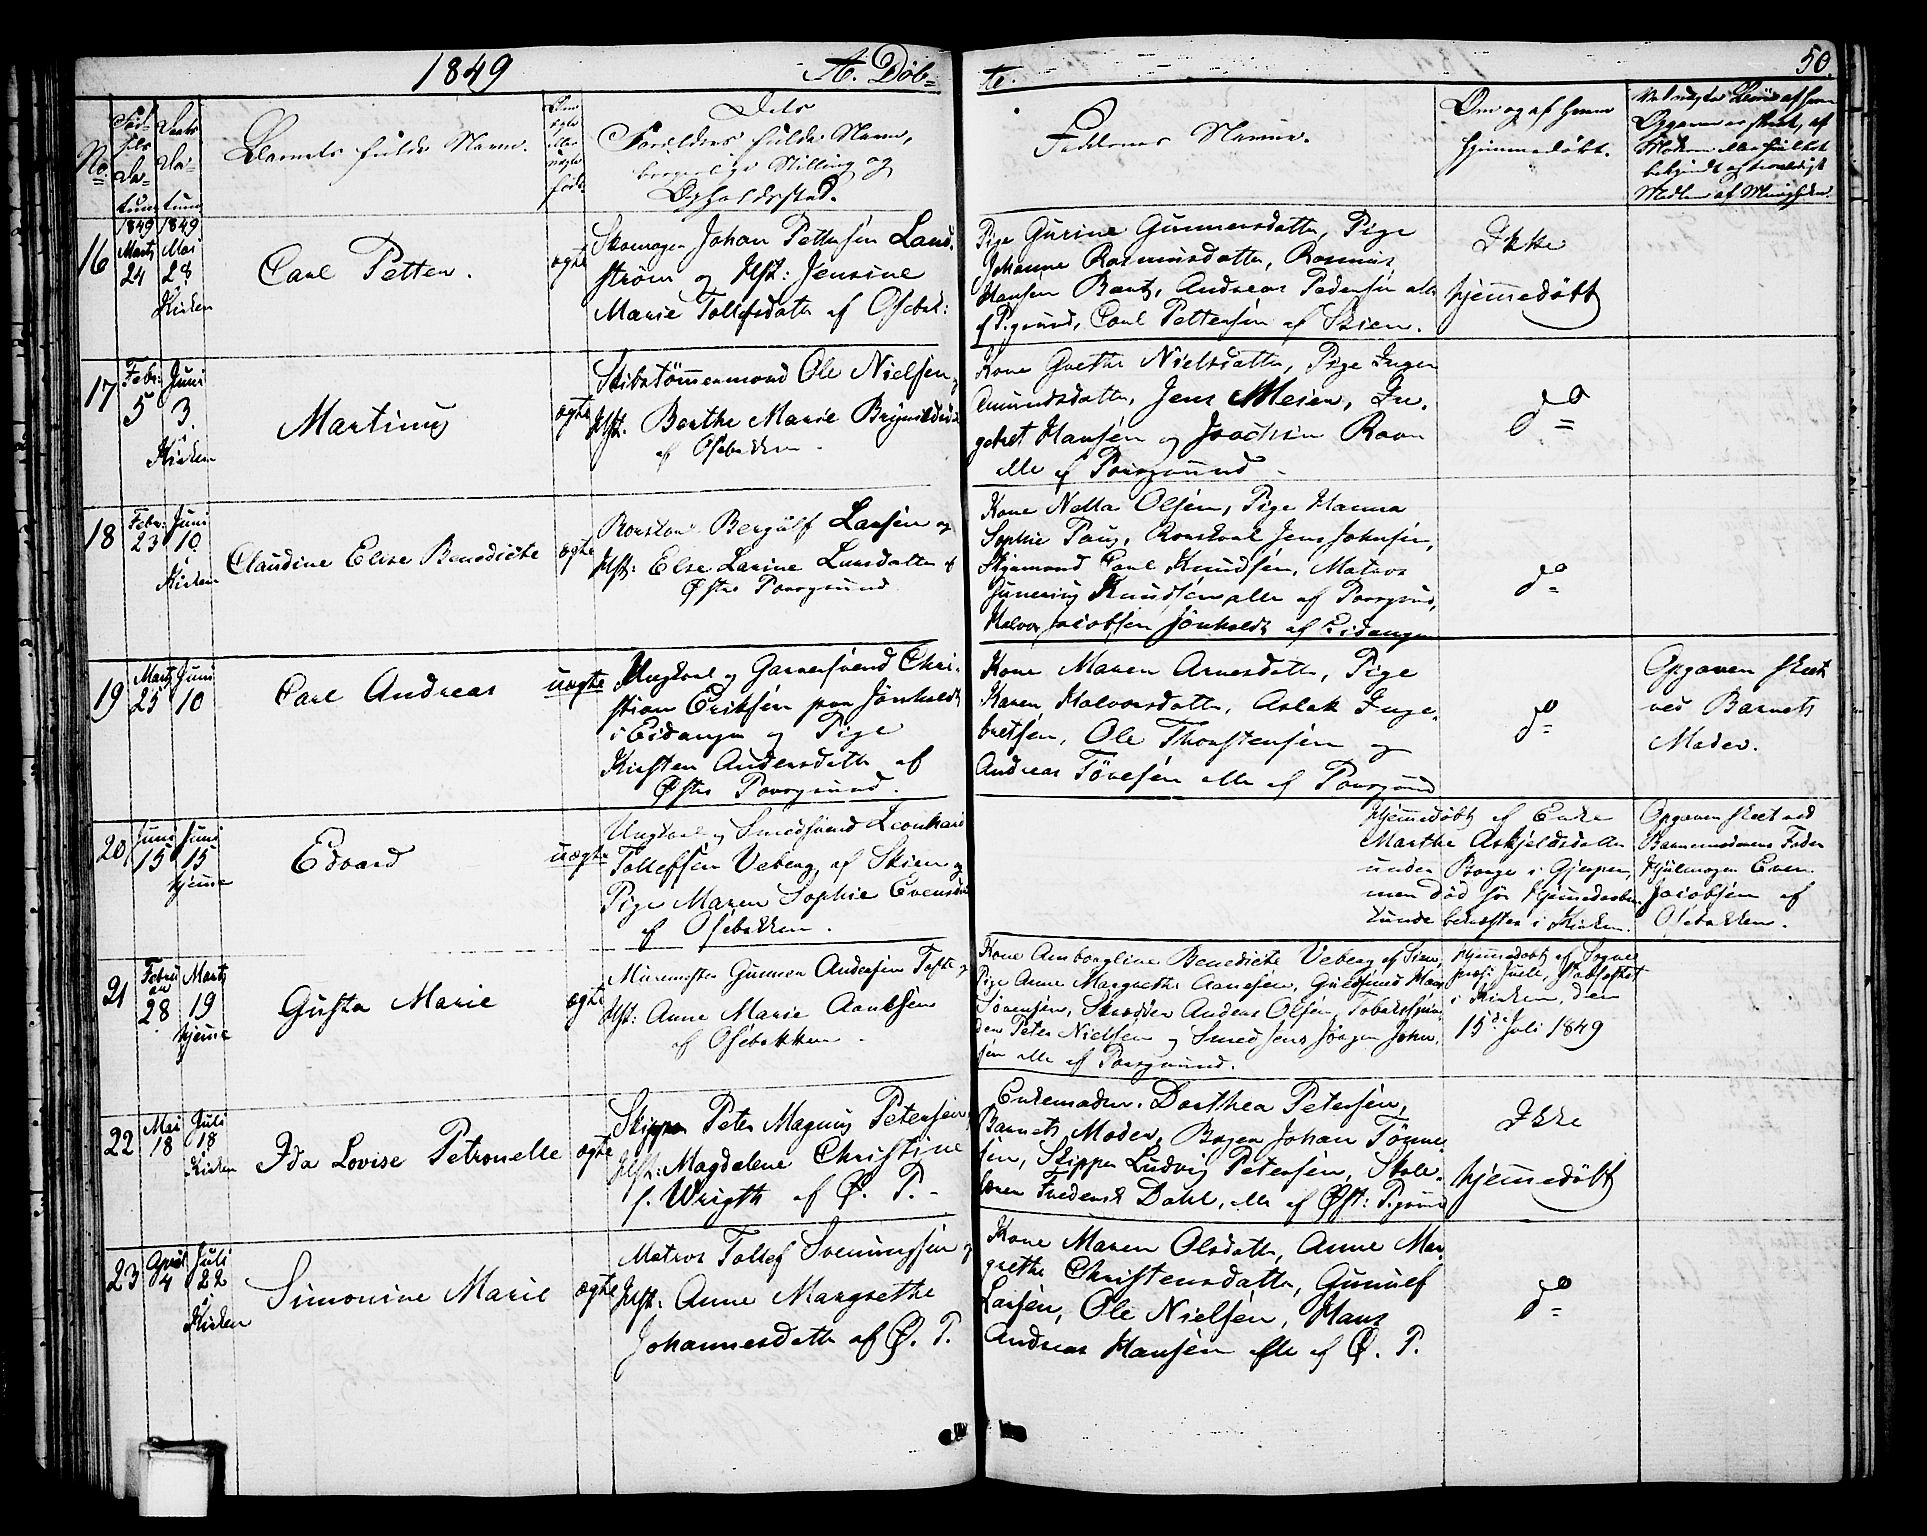 1849
A. Døb-
te.
50.
No
Fød-
sels
Da-
tum
Daabs
Da-
tum
Barnets fulde Navn.
Om
ægte
eller
uægte
født.
Dets
Forældres fulde Navn,
borgerlige Stilling og
Opholdssted.
Faddernes Navne.
Om og af hvem
hjemmedøbt.
16
1849
Marts
24
1849
Mai
28
Kirken
Carl Petter.
ægte
Skomager Johan Pettersen Land-
strøm og Hst: Jensine
Marie Tollefsdatter af Osebak:
Pige Gurine Gunnersdatter, Pige
Johanne Rasmusdatter, Rasmus
Hansen Bantz, Andreas Pedersen alle
af P.grund, Carl Pettersen af Skien.
Ikke
hjemmedøbt
17
Febr:
5
Juni
3.
Kirken
Martinus
ægte
Skibstømmermand Ole Nielsen,
Hst. Berthe Marie Brynildsd
af Osebakken.
Kone Grethe Nielsdatter, Pige Inger
Amundsdatter, Jens Meier, In-
gebret Hansen og Joachim Ravn
alle af Porsgrund
do
18
Febr:
23
Juni
10
Kirken
Claudine Elise Benedicte
ægte
Bergulf Larsen og
Hst: Else Larine Larsdatter af
Østre Porsgrund
Kone Nella Olsen, Pige Hanna
Sophie Jens Johnsen,
Carl Knudsen, Matros
Knudsen alle af Porsgrund,
Halvor Jacobsen Jønholdt af Eidanger
do
19
Marts
25
Juni
10
Carl Andreas
uægte
Ungkarl og Garversvend Chri-
stian Eriksen paa Jønholdt
i Eidanger og Pige
Kirsten Andersdatter af
Østre Porsgrund.
Kone Maren Arnesdatter, Pige
Karen Halvorsdatter, Aslak Inge-
bretsen, Ole Thorstensen og
Andreas Tovesen alle af Porsgrund
do
Opgaven skeet
ved Barnets
Moder.
20
Juni
15
Juni
15
hjemme
Edvard
uægte
Ungkarl og Smedsvend Leonhard
Tollefsen Veberg af Skien og
Pige Maren Sophie Evensd
af Osebakken.
Hjemmedøbt af Enke
Marthe Askjeldsdatter
under Borge i Gjerpen,
men død før Hjemmedaaben
kunde bekræftes i Kirken.
Opgaven skeet ved
Barnemoderens Fader
Hjulmager Even
Jacobsen af
Osebakken.
21
Febru
ar
28
Marts
19
hjemme
Gusta Marie
ægte
Muremester Gunner Andersen Tofte og
Hst: Anne Marie Aanksen
af Osebakken.
Kone Amborgline Benedicte Veberg af Skien,
Pige Anne Margrethe Aansen, Guldsmed Hans
Sørensen, Skrædder Anders Olsen, Tobakspin-
der Peter Nielsen og Smed Jens Jørgen John-
sen alle af Porsgrund.
Hjemmedøbt af Sogne
i Kirken, den
15de Juli 1849
22
Mai
18
Juli
18
Kirken
Ida Lovise Petronelle
ægte
Skipper Peter Magnus Petersen,
Hst: Magdalene Christine
f. Wrigth af Ø. P.
Enkemadm. Dorthea Petersen,
Barnets Moder, Bager Johan Tønne-
sen, Skipper Ludvig Petersen, Skole-
lærer Frederik Dahl, alle af Øst: P.grund
Ikke
hjemmedøbt
23
April
4
Juli
22
Kirken
Simonine Marie
ægte
Matros Tollef Svenningsen og
Hst: Anne Margrethe
Johannesdatter af Ø. P.
Kone Maren Olsdatter, Anne Mar-
grethe Christensdatter, Gunulf
Larsen, Ole Nielsen, Hans
Andreas Hansen alle af Ø. P.
do